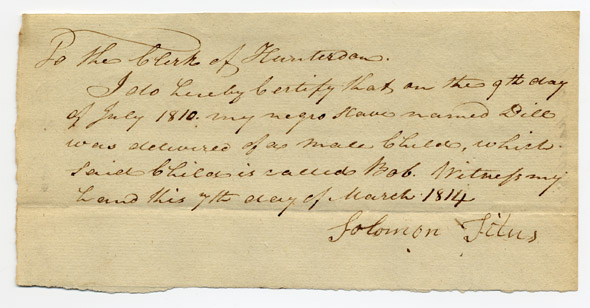 To the Clerk of Hunterdon.
I do hereby Certify that on the 9th day
of July 1810. my negro slave named Dill
was delivered of as male Child, which
said Child is called Bob. Witness my
hand this 7th day of March 1814
Solomon Titus